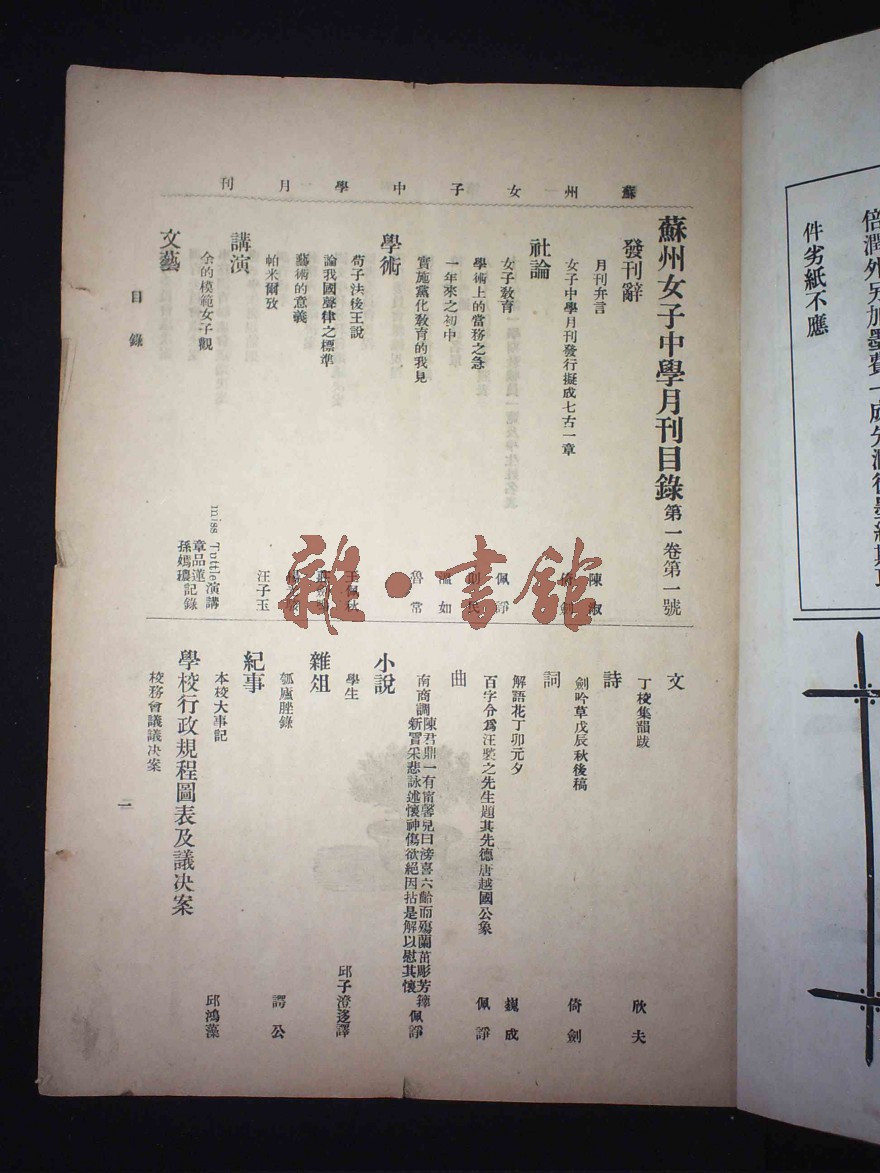 倍潤外另加墨費一成先潤後墨約期取
件劣紙不應
蘇州女子中學月刊
蘇州女子中學月刊目錄 第一卷第一號
發刊辭
月刊弁言 陳淑
女子中學月刊發行擬成七古一章 倚劍
社論
女子教育 佩諍
學術上的當務之急 則民
一年來之初中 溫如
實施黨化教育的我見 魯常
學術
荀子法後王說 王佩秋
論我國聲律之標準
藝術的意義
帕米爾攷 汪子玉
講演
余的模範女子觀 miss Tuttle演講
章品蓮記錄
孫嫣穠記錄
文藝
文
丁稜集韻跋 欣夫
詩
劍吟草戊辰秋後稿 倚劍
詞
解語花丁卯元夕 巍成
百字令爲汪裝之先生題其先德唐越國公象 佩諍
曲
南商調陳君鼎一有甯馨兒曰滂喜六齡而殤蘭茁彫芳
新冒采悲詠述懷神傷欲絕因拈是解以慰其懷 佩諍
小說
學生 邱子澄迻譯
雜俎
瓠廬脞錄 諤公
紀事
本校大事記 邱鴻藻
學校行政規程圖表及議决案
校務會議議决案
目錄
一
雜·書館